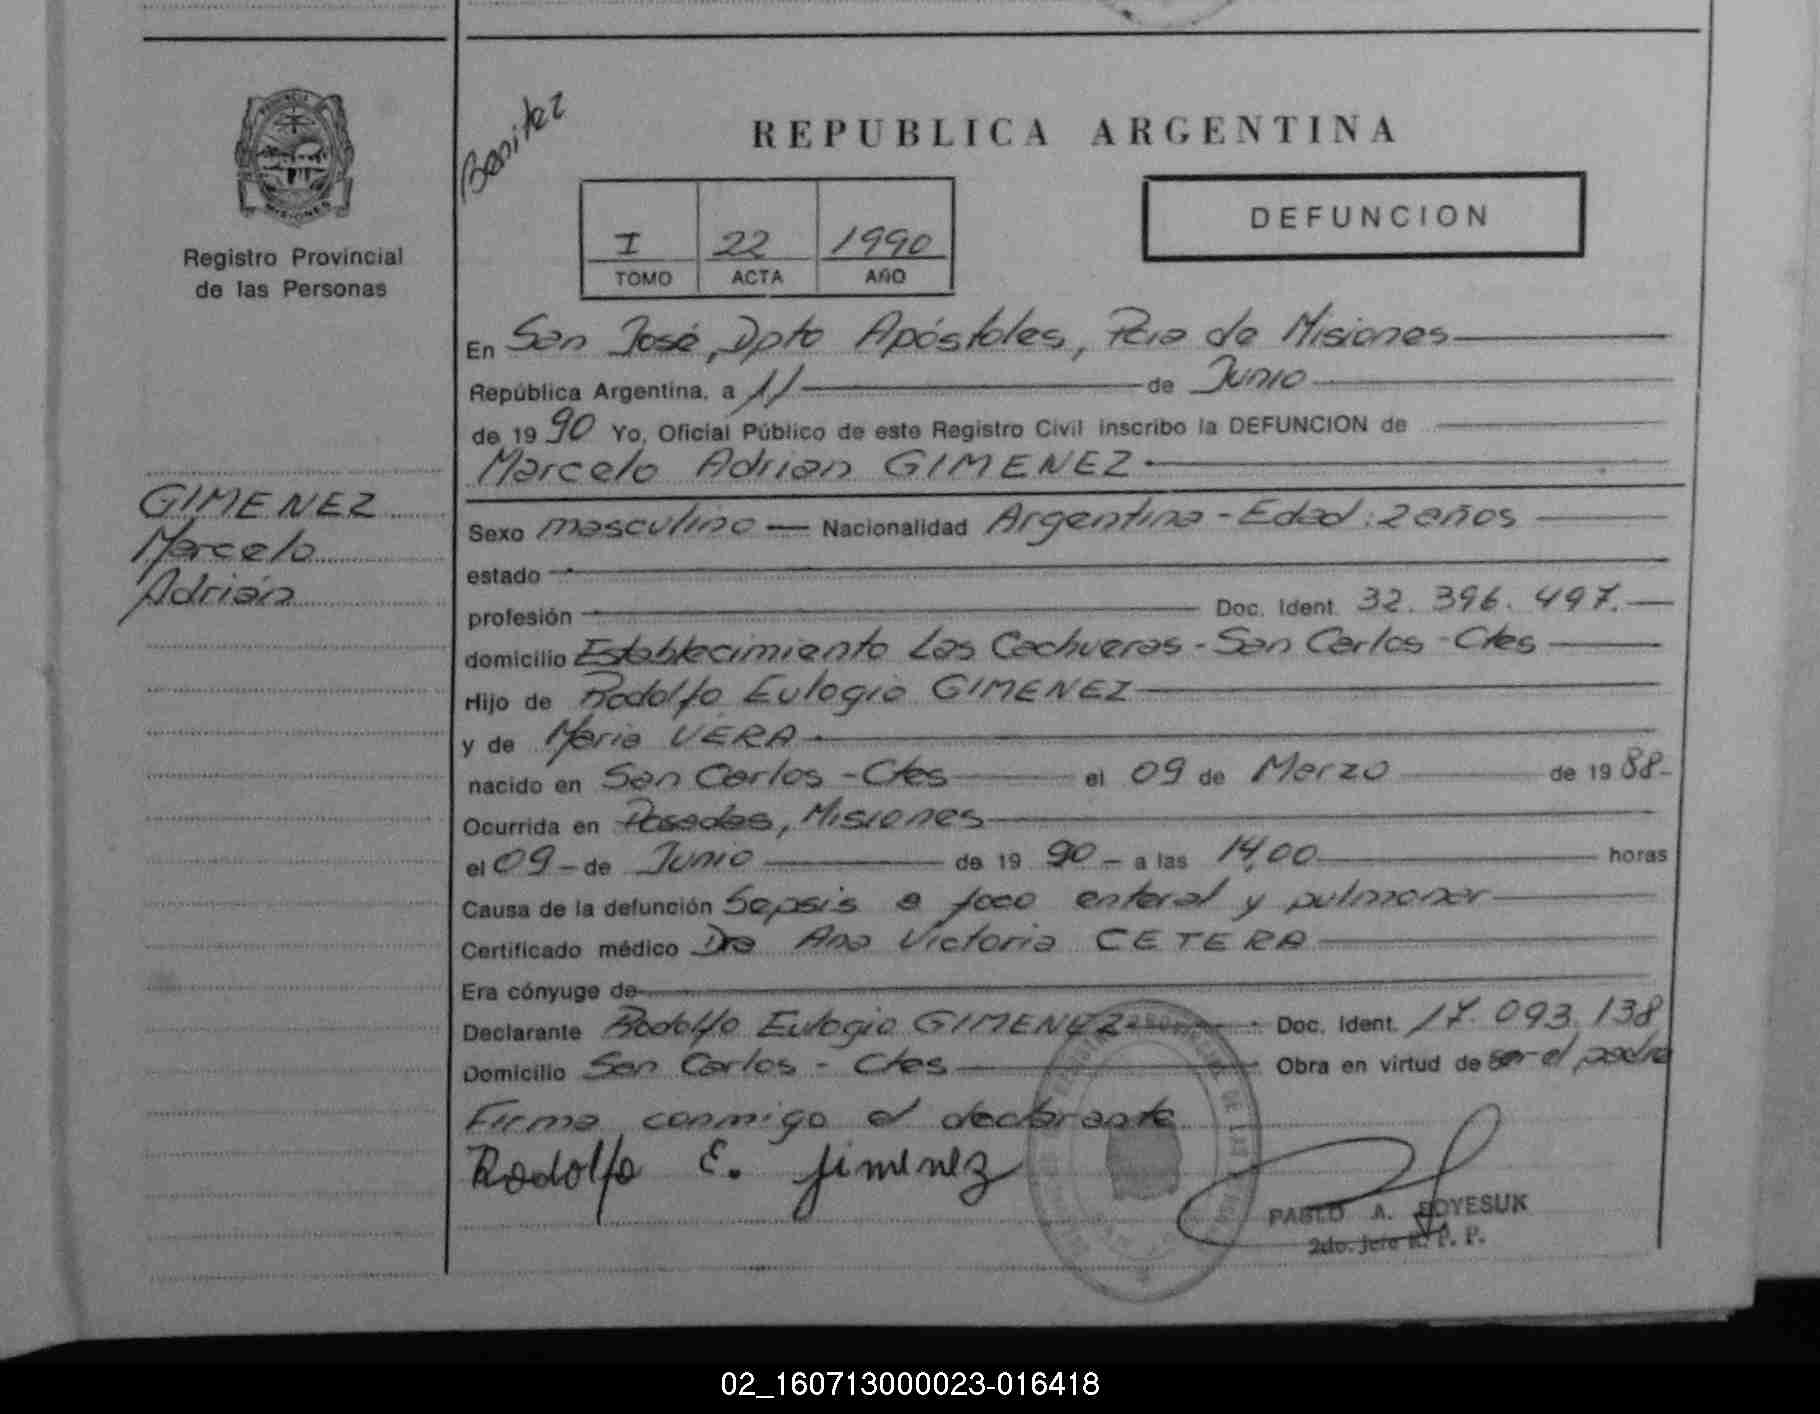 Benitez
REPUBLICA ARGENTINA
PROVINCIA
MISIONES
Registro Provincial
de las Personas
I 22 1990
TOMO ACTA AÑO
DEFUNCION
GIMENEZ
Marcelo
Adrián
En San José, Dpto Apóstoles, Pcia de Misiones
República Argentina, a 11 de Junio
de 1990 Yo, Oficial Público de este Registro Civil inscribo la DEFUNCION de
Marcelo Adrian GIMENEZ
Sexo masculino — Nacionalidad Argentina - Edad: 2 años
estado
profesión Doc. Ident. 32.396.497.
domicilio Establecimiento Las Cachueras - San Carlos - Ctes
Hijo de Rodolfo Eulogio GIMENEZ
y de Maria VERA
nacido en San Carlos - Ctes el 09 de Marzo de 1988-
Ocurrida en Posadas, Misiones
el 09 - de Junio de 19 90 - a las 14,00 horas
Causa de la defunción Sepsis a foco enteral y pulmonar
Certificado médico Dra Ana Victoria CETERA
Era cónyuge de
Declarante Rodolfo Eulogio GIMENEZ Doc. Ident. 17.093.138
Domicilio San Carlos - Ctes Obra en virtud de ser el padre
Firma conmigo el declarante
Rodolfo E. Jimenez
PABLO A.
2do. Jefe R. P. P.
02_160713000023-016418